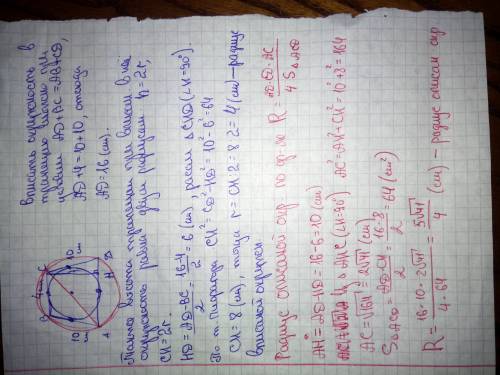 вписать окружность в
трапецию можно при
условии AD+BC=AB+CD,
AD+4=10+10, отсюда
AD=16 (cm).
B 4cm C
10 cm
10 cm
A H D
высота трапеции при вписан в неё
окружность равна двум радиусам h=2r,
CH=2r.
HD = AD-BC / 2 = 16-4 / 2 = 6 (cm), CHD (∠H=90°).
По т Пифагора CH²=CD²-HD²=10²-6²=64
CH=8 (cm), тогда r=CH:2=8:2=4 (cm) - радиус
вписаной окружн
Радиус описаной окр по ф-ле R = AD·CD·AC / 4 S△ACD
AH=AD-HD=16-6=10 (cm)
△ AHC (∠H=90°) AC²=AH²+CH²=10²+8²=164
AC=√164=2√41 (cm)
S△ACD = AD·CH / 2 = 16·8 / 2 = 64 (cm²)
R = 16·10·2√41 / 4·64 = 5√41 / 4 (cm) - радиус описан окр